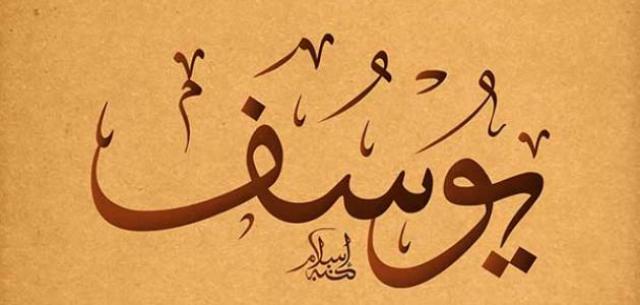 يوسف
كتبه إسلام